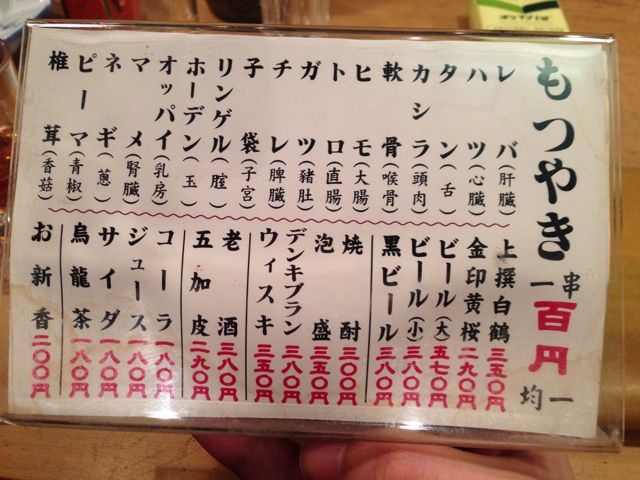 もつやき 一串百円均一
レバ（肝臓）
ハツ（心臓）
タン（舌）
カシラ（頭肉）
軟骨（喉骨）
ヒモ（大腸）
トロ（直腸）
ガツ（豬肚）
チレ（脾臓）
子袋（子宮）
リンゲル（腟）
ホーデン（玉）
オッパイ（乳房）
マメ（腎臓）
ネギ（蔥）
ピーマ（青椒）
椎茸（香菇）
上撰白鶴 三五〇円
金印黄桜 二九〇円
ビール（大） 五七〇円
ビール（小） 三八〇円
黒ビール 三八〇円
焼酎 三〇〇円
泡盛 三五〇円
デンキブラン 三八〇円
ウィスキ 三五〇円
老酒 三八〇円
五加皮 二九〇円
コーラ 一八〇円
ジュース 一八〇円
サイダ 一八〇円
烏龍茶 一八〇円
お新香 二〇〇円